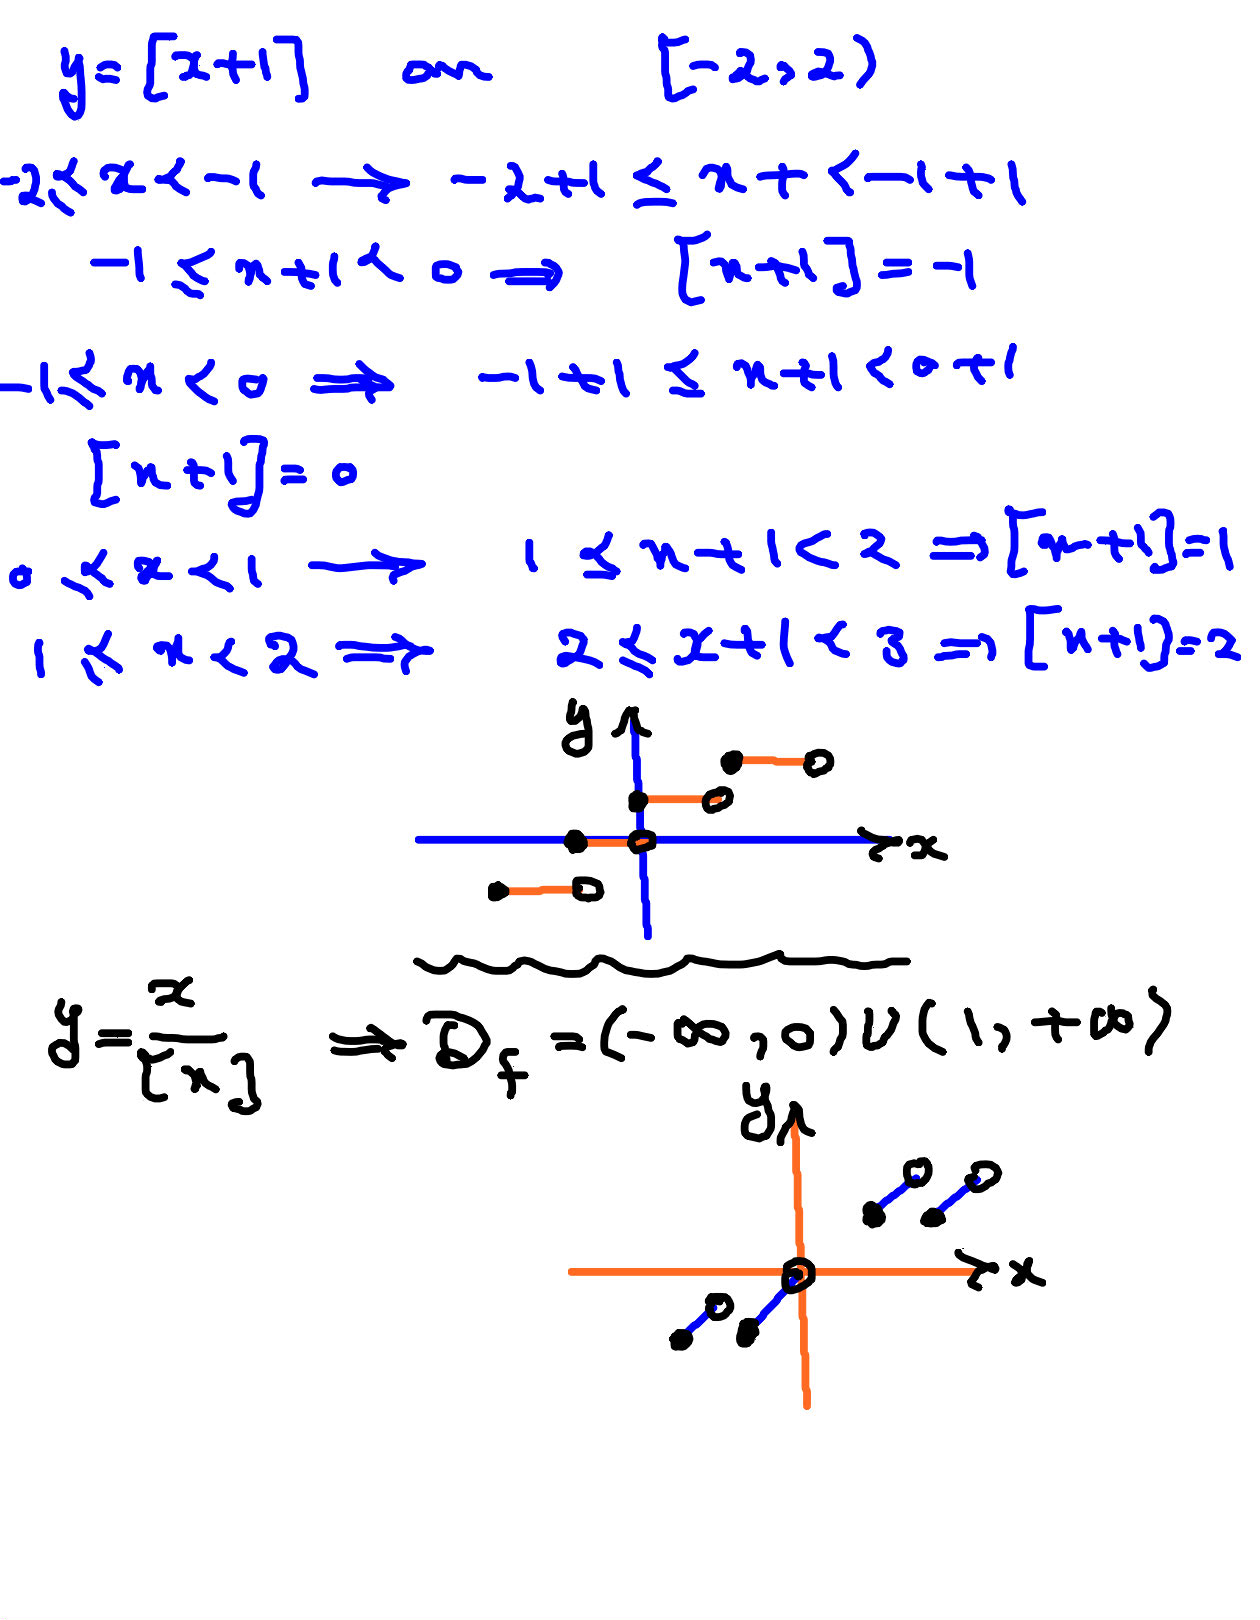 y = [x+1] on [-2, 2)
-2 ≤ x < -1 → -2+1 ≤ x+ < -1+1
-1 ≤ x+1 < 0 ⇒ [x+1] = -1
-1 ≤ x < 0 ⇒ -1+1 ≤ x+1 < 0+1
[x+1] = 0
0 ≤ x < 1 → 1 ≤ x+1 < 2 ⇒ [x+1] = 1
1 ≤ x < 2 ⇒ 2 ≤ x+1 < 3 ⇒ [x+1] = 2
y
x
y = x/[x] ⇒ D_f = (-∞, 0) ∪ (1, +∞)
y
x